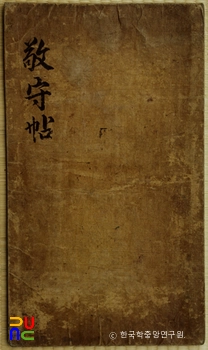 敬守帖
ⓒ 한국학중앙연구원.